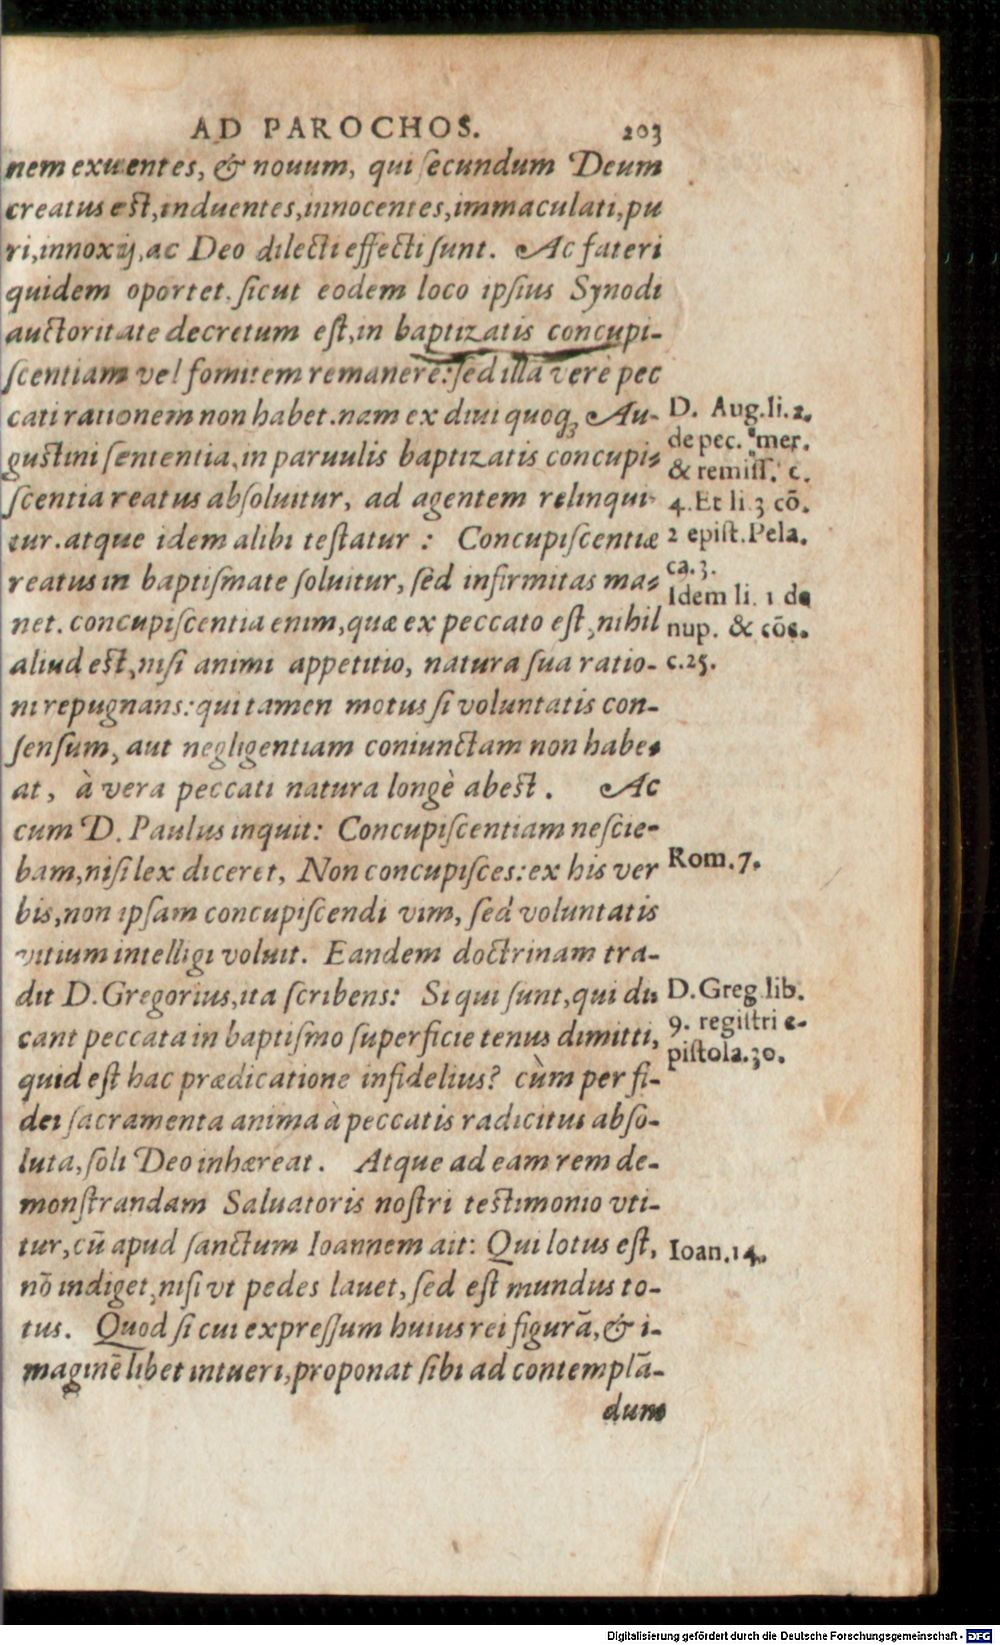 AD PAROCHOS. 203
nem exuentes, & nouum, qui secundum Deum
creatus est, induentes, innocentes, immaculati, pu
ri, innoxij, ac Deo dilecti effecti sunt. Ac fateri
quidem oportet. sicut eodem loco ipsius Synodi
auctoritate decretum est, in baptizatis concupi-
scentiam vel fomitem remanere: sed illa verè pec
cati rationem non habet. nam ex diui quoq; Au-
gustini sententia, in paruulis baptizatis concupi-
scentia reatus absoluitur, ad agentem relinqui-
tur. atque idem alibi testatur : Concupiscentiæ
reatus in baptismate soluitur, sed infirmitas ma-
net. concupiscentia enim, quæ ex peccato est, nihil
aliud est, nisi animi appetitio, natura sua ratio-
ni repugnans: qui tamen motus si voluntatis con-
sensum, aut negligentiam coniunctam non habe-
at, à vera peccati natura longè abest. Ac
cum D. Paulus inquit: Concupiscentiam nescie-
bam, nisi lex diceret, Non concupisces: ex his ver
bis, non ipsam concupiscendi vim, sed voluntatis
vitium intelligi voluit. Eandem doctrinam tra-
dit D. Gregorius, ita scribens: Si qui sunt, qui di
cant peccata in baptismo superficie tenus dimitti,
quid est hac prædicatione infidelius? cùm per fi-
dei sacramenta anima à peccatis radicitus abso-
luta, soli Deo inhæreat. Atque ad eam rem de-
monstrandam Saluatoris nostri testimonio vti-
tur, cū apud sanctum Ioannem ait: Qui lotus est,
nō indiget, nisi vt pedes lauet, sed est mundus to-
tus. Quod si cui expressum huius rei figurā, & i-
maginē libet intueri, proponat sibi ad contemplā-
dum
D. Aug. li. 2.
de pec. mer.
& remiss. c.
4. Et li. 3 cō.
2 epist. Pela.
ca. 3.
Idem li. 1 de
nup. & cōc.
c. 25.
Rom. 7.
D. Greg lib.
9. registri e-
pistola. 30.
Ioan. 14.
Digitalisierung gefördert durch die Deutsche Forschungsgemeinschaft - DFG